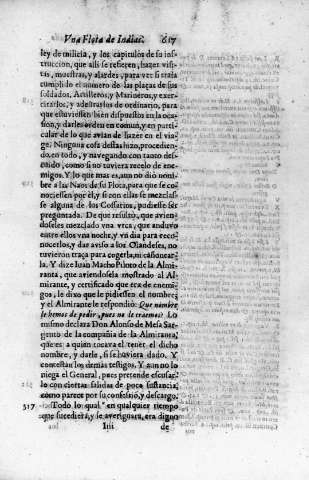 Vna Flota de Indias. 617
ley de milicia, y los capitulos de su ins-
truccion, que alli se refieren, hazer visi-
tas, muestras, y alardes, para ver si traía
cumplido el numero de las plaças de sus
soldados, Artilleros, y Marineros, y exer-
citarlos, y adestrarlos de ordinario, para
que estuviessen bien dispuestos en la oca-
sion, y darles orden en comun, y en parti-
cular de lo que avian de hazer en el via-
ge. Ninguna cosa destas hizo, procedien-
do, en todo, y navegando con tanto des-
cuido, como si no tuviera recelo de ene-
migos. Y lo que mas es, aun no dió nom-
bre a las Naos de su Flota, para que se co-
nociessen por èl, y si con ellas se mezclas-
se alguna de los Cossarios, pudiesse ser
preguntada. De que resultò, que avien-
doseles mezclado vna vrca, que anduvo
entre ellos vna noche, y vn dia para reco-
nocerlos, y dar aviso a los Olandeses, no
tuvieron traça para cogerla, ni cañonear-
la. Y dize Iuan Macho Piloto de la Almi-
ranta, que aviendosela mostrado al Al-
mirante, y certificado que era de enemi-
gos, le dixo que le pidiessen el nombre,
y el Almirante le respondió: Que nombre
le hemos de pedir, pues no le traemos? Lo
mismo declara Don Alonso de Mesa Sar-
gento de la compañia de la Almiranta,
que es a quien tocava el tener el dicho
nombre, y darle, si se huviera dado. Y
contestan los demas testigos. Y aun no lo
niega el General, pues pretende escusar-
lo con ciertas salidas de poca sustancia,
como parece por su confessió, y descargo.
517 Todo lo qual en qualquier tiempo
que sucediera, y se averiguara, era digno
Iiii de